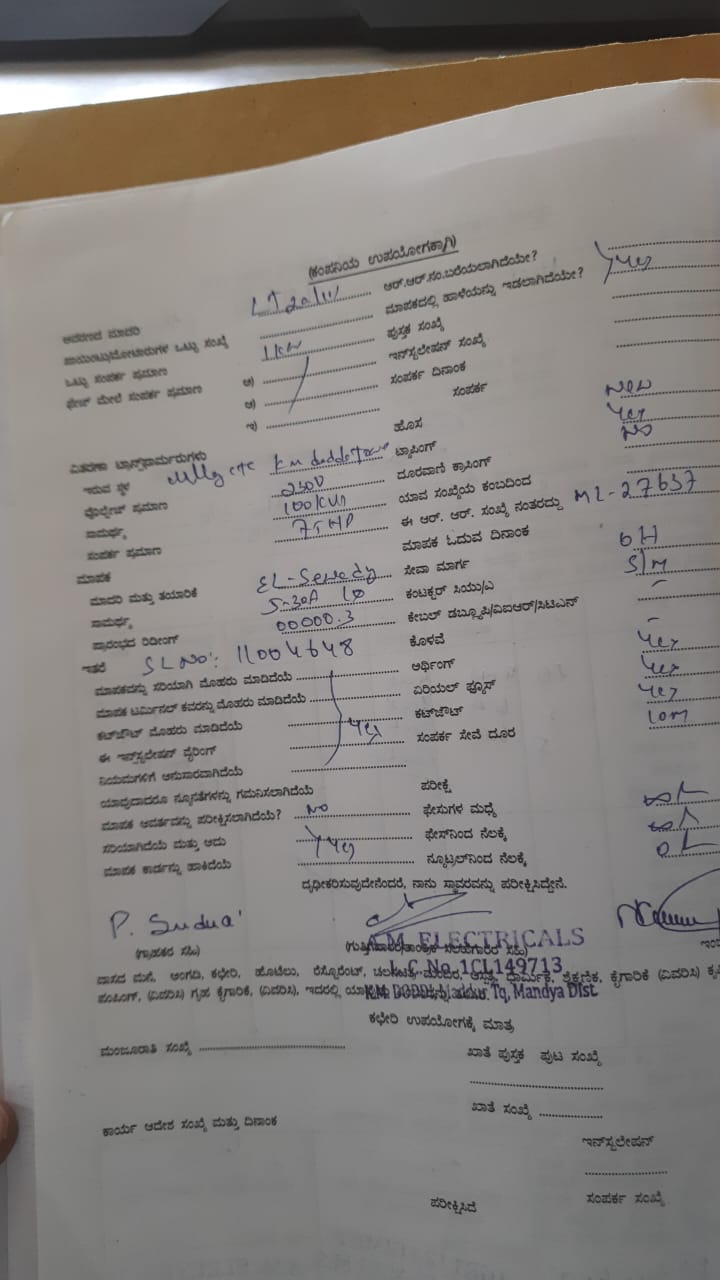 (ಕಂಪನಿಯ ಉಪಯೋಗಕ್ಕಾಗಿ)
ಆವರಣದ ಮಾದರಿ ಆರ್.ಆರ್.ನಂ.ಬರೆಯಲಾಗಿದೆಯೇ?
ಪಾಯಿಂಟ್ಸು/ಮೋಟಾರುಗಳ ಒಟ್ಟು ಸಂಖ್ಯೆ ಮಾಪಕದಲ್ಲಿ ಹಾಳೆಯನ್ನು ಇಡಲಾಗಿದೆಯೇ? Yes
ಒಟ್ಟು ಸಂಪರ್ಕ ಪ್ರಮಾಣ 1KW ಪುಸ್ತಕ ಸಂಖ್ಯೆ
ಫೇಸ್ ಮೇಲೆ ಸಂಪರ್ಕ ಪ್ರಮಾಣ ಅ) ಇನ್‌ಸ್ಟಲೇಷನ್ ಸಂಖ್ಯೆ
ಆ) ಸಂಪರ್ಕ ದಿನಾಂಕ
ಇ) ಸಂಪರ್ಕ
ವಿತರಣಾ ಟ್ರಾನ್ಸ್‌ಫಾರ್ಮರುಗಳು ಹೊಸ New
ಇರುವ ಸ್ಥಳ ಟ್ಯಾಪಿಂಗ್ Yes
ವೋಲ್ಟೇಜ್ ಪ್ರಮಾಣ 230V ದೂರವಾಣಿ ಕ್ರಾಸಿಂಗ್ NO
ಸಾಮರ್ಥ್ಯ 100KVA ಯಾವ ಸಂಖ್ಯೆಯ ಕಂಬದಿಂದ
ಸಂಪರ್ಕ ಪ್ರಮಾಣ ಈ ಆರ್. ಆರ್. ಸಂಖ್ಯೆ ನಂತರದ್ದು ML-27637
ಮಾಪಕ ಮಾಪಕ ಓದುವ ದಿನಾಂಕ
ಮಾದರಿ ಮತ್ತು ತಯಾರಿಕೆ ಸೇವಾ ಮಾರ್ಗ OH
ಸಾಮರ್ಥ್ಯ 5-30A 1Ø ಕಂಟಕ್ಟರ್ ಸಿಯು/ಎ
ಪ್ರಾರಂಭದ ರಿಡೀಂಗ್ 00000.3 ಕೇಬಲ್ ಡಬ್ಲ್ಯೂಪಿ/ವಿಐಆರ್/ಸಿಟಿಎನ್ -
ಇತರೆ SL No: 11004648 ಕೊಳವೆ -
ಮಾಪಕವನ್ನು ಸರಿಯಾಗಿ ಮೊಹರು ಮಾಡಿದೆಯೆ ಆರ್ಥಿಂಗ್ Yes
ಮಾಪಕ ಟರ್ಮಿನಲ್ ಕವರನ್ನು ಮೊಹರು ಮಾಡಿದೆಯೆ ಏರಿಯಲ್ ಫ್ಯೂಸ್ Yes
ಕಟ್‌ಔಟ್ ಮೊಹರು ಮಾಡಿದೆಯೆ Yes ಕಟ್‌ಔಟ್ Yes
ಈ ಇನ್‌ಸ್ಟಲೇಷನ್ ವೈರಿಂಗ್ ಸಂಪರ್ಕ ಸೇವೆ ದೂರ 10m
ನಿಯಮಗಳಿಗೆ ಅನುಸಾರವಾಗಿದೆಯೆ
ಯಾವುದಾದರೂ ನ್ಯೂನತೆಗಳನ್ನು ಗಮನಿಸಲಾಗಿದೆಯೆ ಪರೀಕ್ಷೆ
ಮಾಪಕ ಆವರ್ತವನ್ನು ಪರೀಕ್ಷಿಸಲಾಗಿದೆಯೆ? NO ಫೇಸುಗಳ ಮಧ್ಯೆ
ಸರಿಯಾಗಿದೆಯೆ ಮತ್ತು ಅದು Yes ಫೇಸ್‌ನಿಂದ ನೆಲಕ್ಕೆ
ಮಾಪಕ ಕಾರ್ಡನ್ನು ಹಾಕಿದೆಯೆ ನ್ಯೂಟ್ರಲ್‌ನಿಂದ ನೆಲಕ್ಕೆ
ದೃಢೀಕರಿಸುವುದೇನೆಂದರೆ, ನಾನು ಸ್ಥಾವರವನ್ನು ಪರೀಕ್ಷಿಸಿದ್ದೇನೆ.
A.M. ELECTRICALS
(ಗ್ರಾಹಕರ ಸಹಿ)
L.C.No.1CL149713
ವಾಸದ ಮನೆ, ಅಂಗಡಿ, ಕಛೇರಿ, ಹೊಟೆಲು, ರೆಸ್ಟೊರೆಂಟ್, ಧಾರ್ಮಿಕ, ಶೈಕ್ಷಣಿಕ, ಕೈಗಾರಿಕೆ (ವಿವರಿಸಿ)
K.M. DODDI, Maddur Tq, Mandya Dist
ಪಂಪಿಂಗ್, (ವಿವರಿಸಿ) ಗೃಹ ಕೈಗಾರಿಕೆ, (ವಿವರಿಸಿ), ಇದರಲ್ಲಿ
ಕಛೇರಿ ಉಪಯೋಗಕ್ಕೆ ಮಾತ್ರ
ಮಂಜೂರಾತಿ ಸಂಖ್ಯೆ ಖಾತೆ ಪುಸ್ತಕ ಪುಟ ಸಂಖ್ಯೆ
ಕಾರ್ಯ ಆದೇಶ ಸಂಖ್ಯೆ ಮತ್ತು ದಿನಾಂಕ ಖಾತೆ ಸಂಖ್ಯೆ
ಇನ್‌ಸ್ಟಲೇಷನ್
ಪರೀಕ್ಷಿಸಿದೆ ಸಂಪರ್ಕ ಸಂಖ್ಯೆ